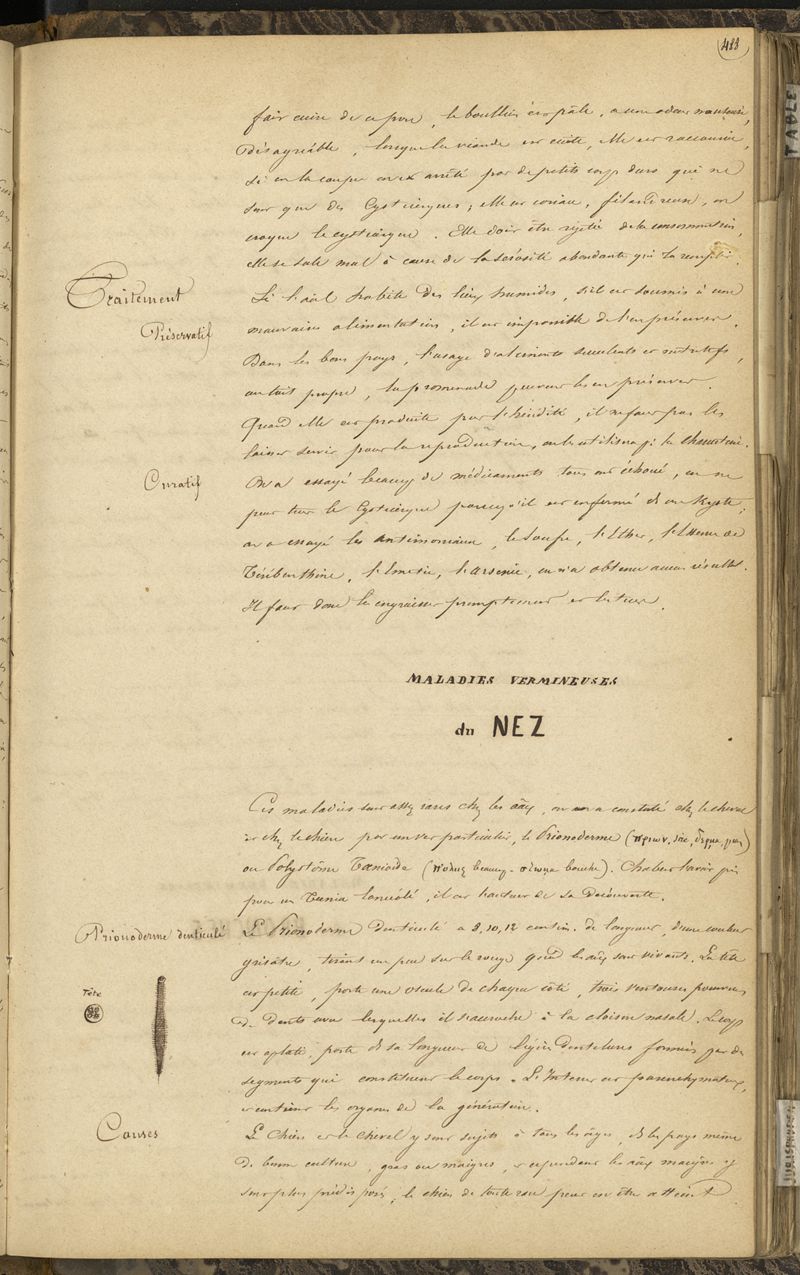 488
fait cuire de ce porc, le bouillon est pâle, a une odeur nauséeuse,
Désagréable, lorsque la viande est cuite, elle est raccornie,
Si on la coupe on est arrêté par de petits corps durs qui ne
sont que des Cysticerques; elle est coriace, filandreuse, on
croque le cysticerque. Elle doit être rejetée de la consommation,
elle se sale mal à cause de la sérosité abondante qui la remplit.
Traitement
Préservatif
Si l'aâl habite des lieux humides, s'il est soumis à une
mauvaise alimentation, il est impossible de l'en préserver.
Dans les bons pays, l'usage d'aliments succulents et nutritifs,
un toit propre, la promenade peuvent les en préserver.
Quand elle est produite par l'hérédité, il ne faut pas les
laisser servir pour la reproduction, on les utilise pr la
Curatif
On a essayé beaucp de médicaments tous ont échoué, on ne
peut tuer le Cysticerque parcequ'il est enfermé ds un Kyste,
on a essayé les antimoniaux, le Soufre, l'Ether, l'Essence de
Térébenthine, l'Emetic, l'Arsenic, on n'a obtenu aucun résultat.
Il faut donc les engraisser promptement et les tuer.
MALADIES VERMINEUSES
du NEZ
Ces maladies sont assez rares chez les aâux, on en a constaté chez le cheval
et chez le chien par un ver particulier, le Prionoderme (πριων, scie, δερμα, peau)
ou Polystôme Tænioide (πολυς beaucp - στωμα bouche). Chabert l'avait pris
pour un Tænia lancéolé, il est l'auteur de sa Découverte.
Prionoderme denticulé
Le Prionoderme denticulé a 8, 10, 12 centim. de longueur, d'une couleur
grisâtre, tirant un peu sur le rouge quand les aâux sont vivants. La tête
Tête
est petite, porte une oscule de chaque côté, trois ventouses pourvues
de Dents avec lesquelles il s'accroche à la cloison nasale. Le corps
est aplati, porte ds sa longueur de légères Dentelures formées par des
segments qui constituent le corps. L'Intérieur est parenchymateux,
et contient les organes de la génération.
Causes
Le Chien et le Cheval y sont sujets à tous les âges, ds les pays même
de bonne culture, gras ou maigres, et cependant les aâux maigres y
sont plus prédisposés, le chien de toute race peut en être atteint
TABLE
JURISPRUDENCE